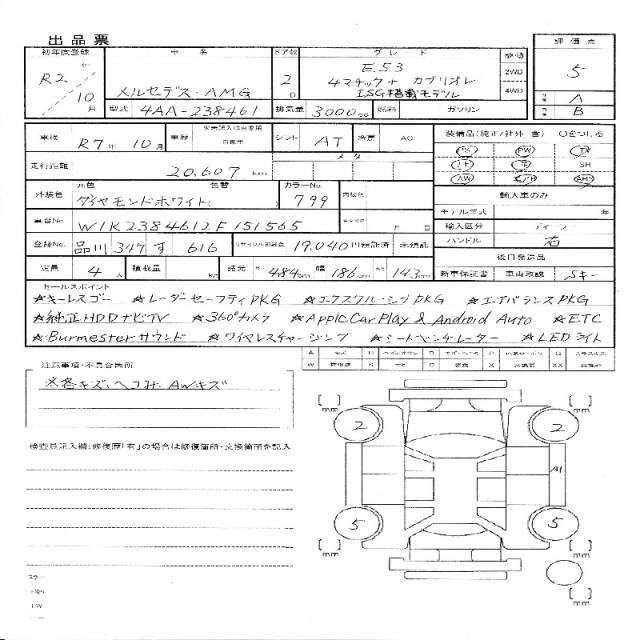 出品票
初年度登録 車名 ドア数 グレード 駆動 評価点
R2年10月 メルセデス・AMG 2D E53 4マチック+ カブリオレ ISG搭載モデル 2WD 4WD 5
型式 4AA-238461 排気量 3000cc 燃料 ガソリン A B
車検 R7年10月 車歴 自家用 シフト AT 冷房 AC 装備品(純正/社外 含) ○をつける
走行距離 20,607 km PS PW SH AW
外装色 元色 ダイヤモンドホワイト( ) 色替 カラーNo. 799 内装色 輸入車のみ
モデル年式 年
車台No. W1K2384612F151565 輸入区分 ディーラー
登録No. 品川 347 す 616 リサイクル預託金 19,040円 預託済 未預託 ハンドル 右
定員 4人 積載量 諸元 長さ 484cm 幅 186cm 高さ 143cm 後日発送品
新車保証書 車両取説 Sキー
セールスポイント
☆キーレスゴー ☆レーダーセーフティPKG ☆エクスクルーシブPKG ☆エアバランスPKG
☆純正HDDナビTV ☆360°カメラ ☆Apple CarPlay & Android Auto ☆ETC
☆Burmesterサウンド ☆ワイヤレスチャージング ☆シートベンチレーター ☆LEDライト
注意事項・不具合箇所
※各キズ、ヘコミ、AWキズ
検査員記入欄:修復歴「有」の場合は修復箇所・交換箇所を記入
[ ]mm [ ]mm
2 2
A1
5 5
[ ]mm [ ]mm
[ ]mm